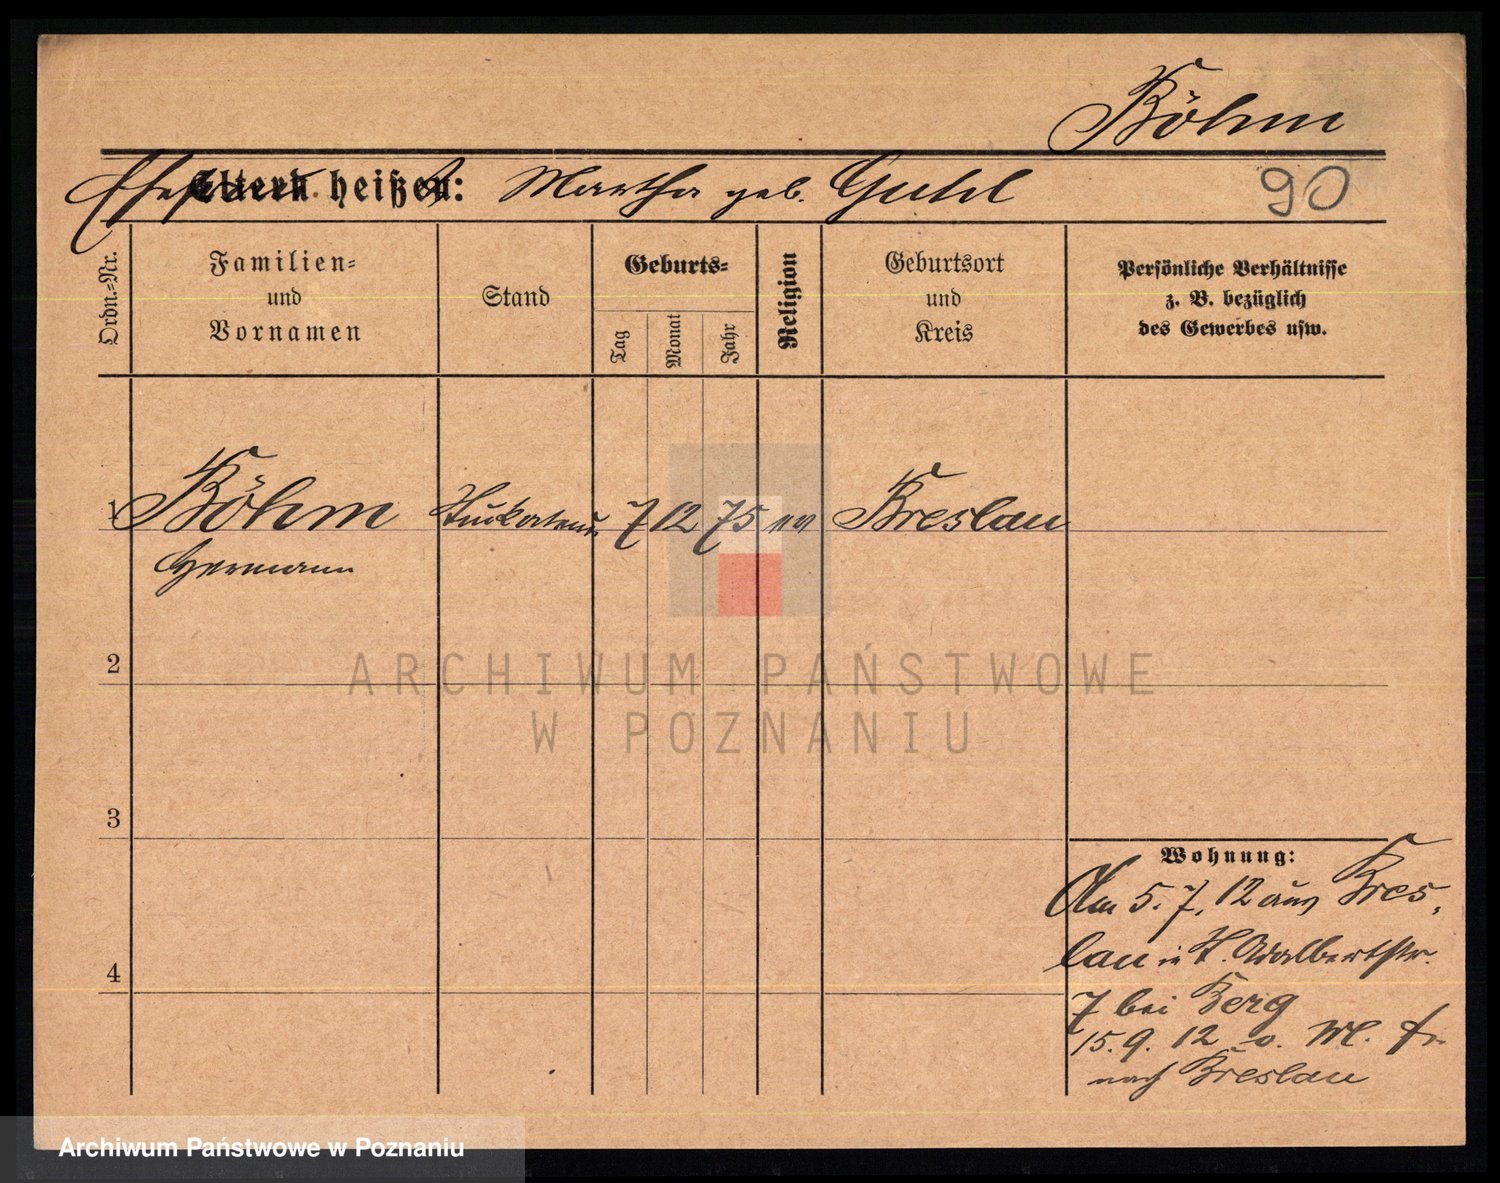 Böhm
Eltern heißen: Martha geb. Guhl
90
Ordn.=Nr.
Familien=
und
Vornamen
Stand
Geburts=
Tag
Monat
Jahr
Religion
Geburtsort
und
Kreis
Persönliche Verhältnisse
z. B. bezüglich
des Gewerbes usw.
1 Böhm Stukateur 7 12 75 ev Breslau
Hermann
ARCHIWUM PAŃSTWOWE
W POZNANIU
2
3
4
Wohnung:
Am 5. 7. 12 aus Bres-
lau in St. Adalbertstr.
7 bei Berg
15. 9. 12 v.
nach Breslau
Archiwum Państwowe w Poznaniu